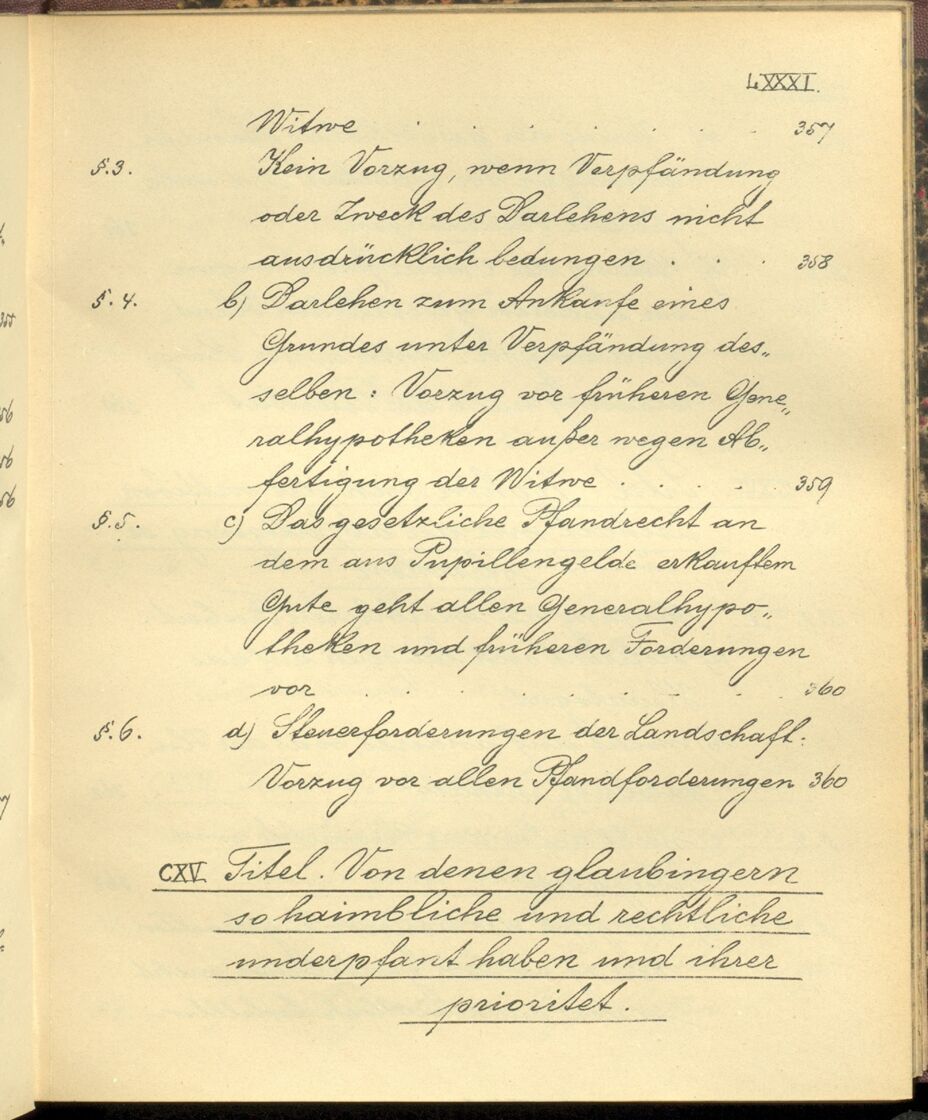 LXXXI.
Witwe . . . . . . . 357
§. 3. Kein Vorzug, wenn Verpfändung
oder Zweck des Darlehens nicht
ausdrücklich bedungen . . . 358
§. 4. b) Darlehen zum Ankaufe eines
Grundes unter Verpfändung des„
selben : Vorzug vor früheren Gene„
ralhypotheken außer wegen Ab„
fertigung der Witwe . . . . . 359
§. 5. c) Das gesetzliche Pfandrecht an
dem aus Pupillengelde erkauftem
Gute geht allen Generalhypo„
theken und früheren Forderungen
vor . . . . . . . . 360
§. 6. d) Steuerforderungen der Landschaft:
Vorzug vor allen Pfandforderungen 360
CXV. Titel. Von denen glaubingern
so haimbliche und rechtliche
underpfant haben und ihrer
prioritet.
355
56
56
56